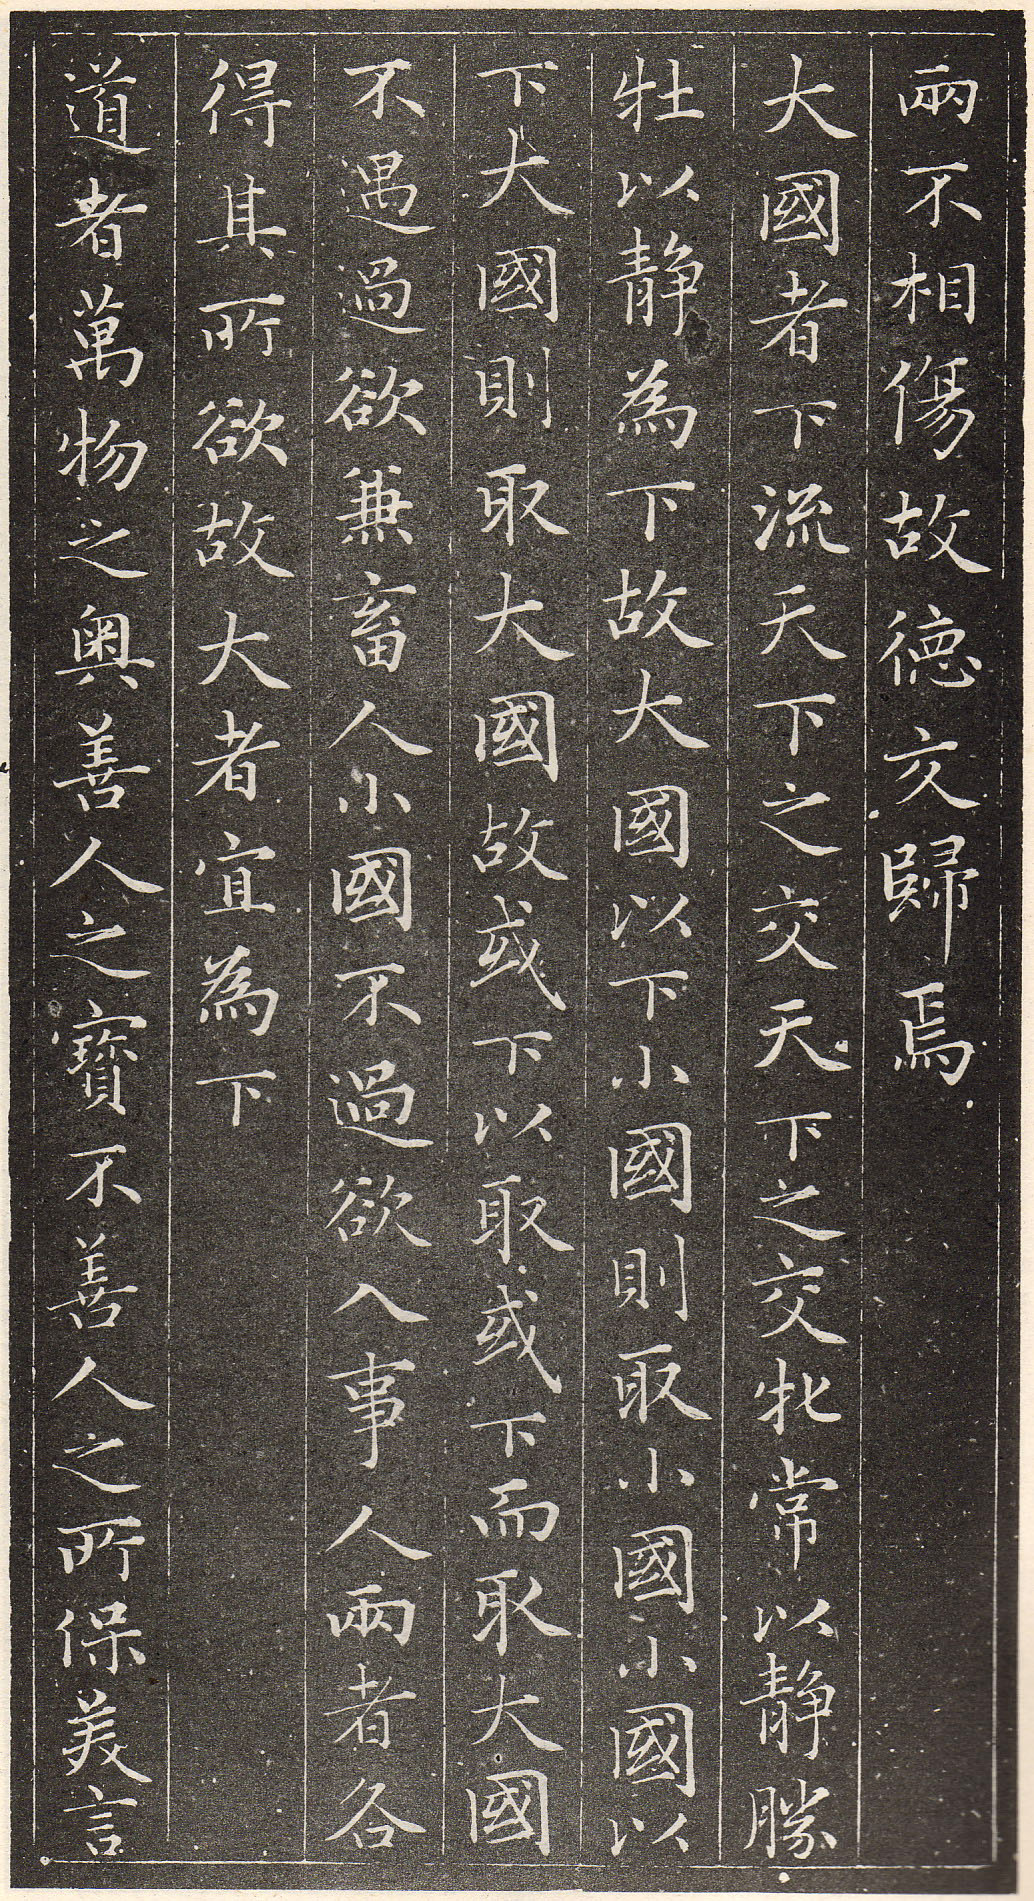 兩不相傷故德交歸焉
大國者下流天下之交天下之交牝常以靜勝
牡以靜為下故大國以下小國則取小國小國以
下大國則取大國故或下以取或下而取大國
不遇過欲兼畜人小國不過欲入事人兩者各
得其所欲故大者宜為下
道者萬物之奧善人之寶不善人之所保美言